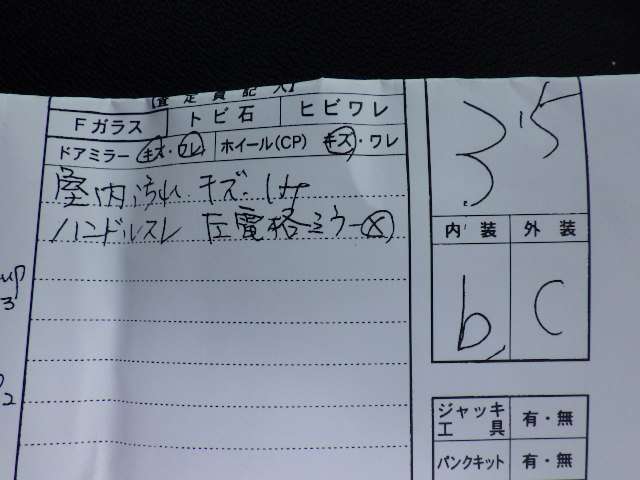 【査定員記入】
Fガラス トビ石 ヒビワレ
ドアミラー キズ・ワレ ホイール(CP) キズ・ワレ
室内汚れ キズ・
ハンドルスレ 左電格ミラー✕
3.5
内装 外装
b C
up
3
2
ジャッキ
工具 有・無
パンクキット 有・無